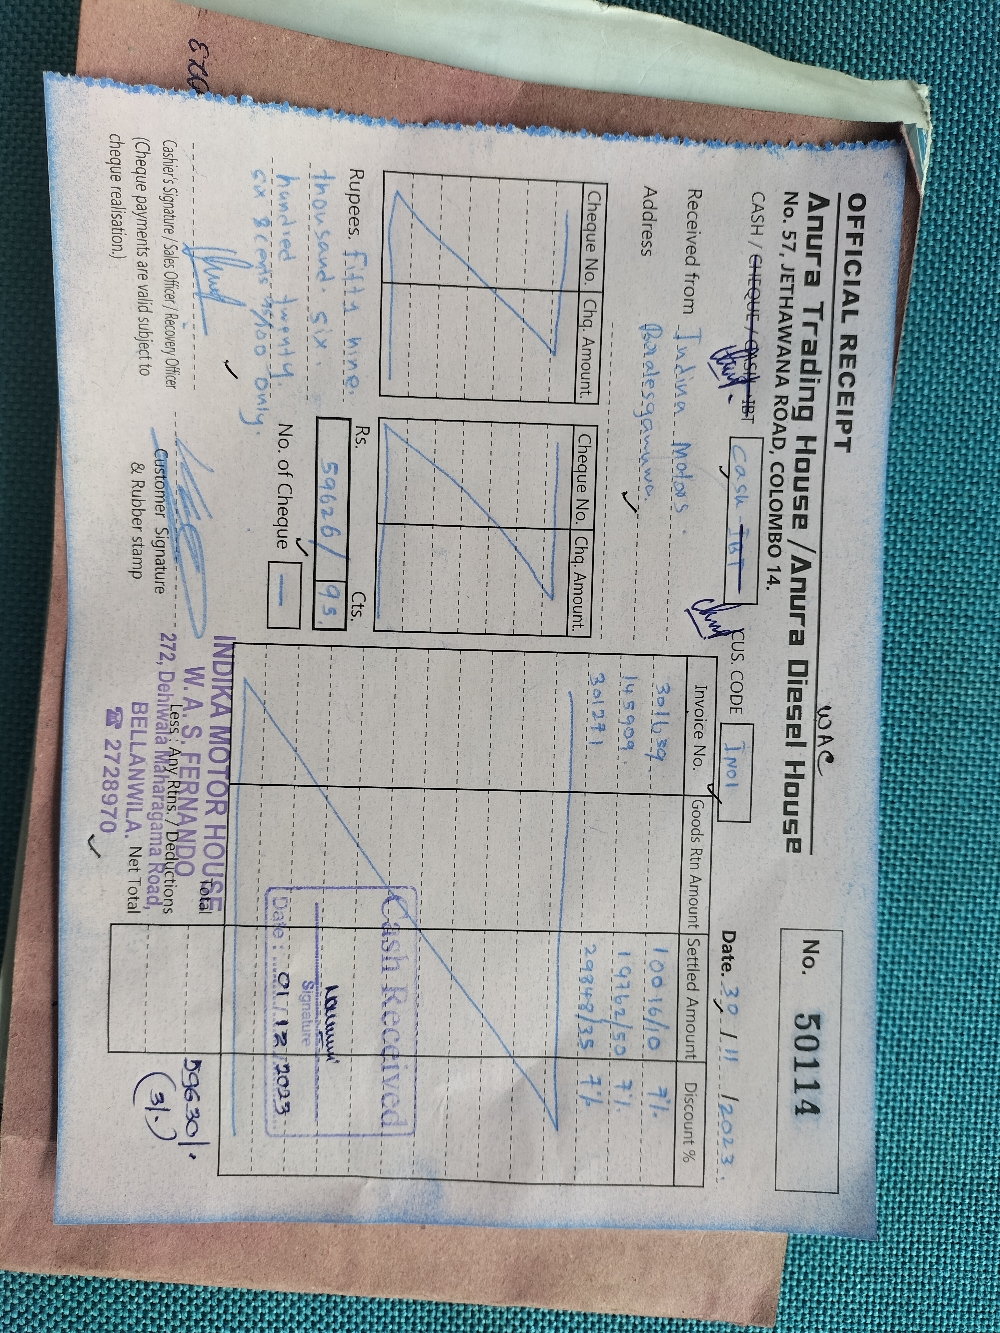 OFFICIAL RECEIPT
Anura Trading House /Anura Diesel House
No. 57, JETHAWANA ROAD, COLOMBO 14.
WAC
No. 50114
CASH / CHEQUE / CASH IBT
Cash IBT
CUS. CODE IN01
Date. 30 / 11 / 2023.
Received from Indina Motors
Address Boralesgamuwa.
Cheque No. Chq. Amount.
Cheque No. Chq. Amount.
Invoice No. Goods Rtn Amount Settled Amount Discount %
301639 10016/10 7%
145909 19762/50 7%
301271 29848/35 7%
Rupees. fifty nine.
thousand six.
hundred twenty
six & cents 95/100 only.
Rs. Cts.
59626/ 95
No. of Cheque —
Cash Received
Signature
Date : 01/12/2023
Total
Less : Any Rtns. / Deductions
Net Total
59630/-
(3/-)
Cashier's Signature / Sales Officer / Recovery Officer
(Cheque payments are valid subject to
cheque realisation.)
Customer Signature
& Rubber stamp
INDIKA MOTOR HOUSE
W. A. S. FERNANDO
272, Dehiwala Maharagama Road,
BELLANWILA.
☎ 2728970